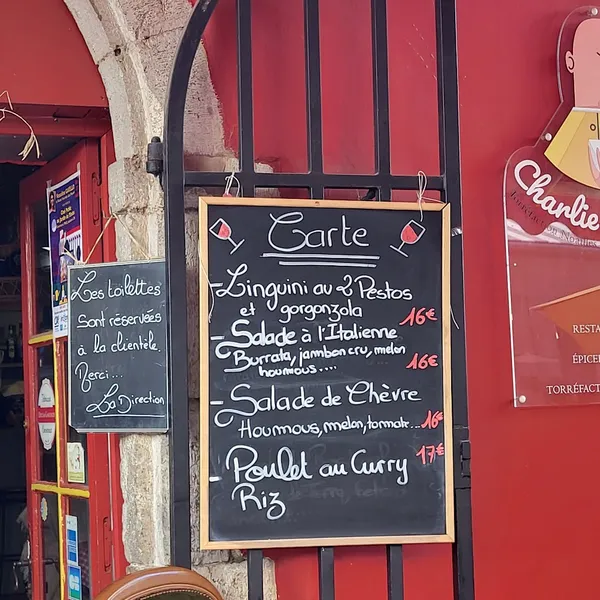 Carte
- Linguini au 2 Pestos
et gorgonzola 16€
- Salade à l'Italienne
Burrata, jambon cru, melon 16€
houmous....
- Salade de Chèvre
Houmous, melon, tomate... 16€
- Poulet au Curry 17€
Riz
Les toilettes
sont réservées
à la clientèle.
Merci...
La Direction
Charlie
RESTA
ÉPICER
TORRÉFACT